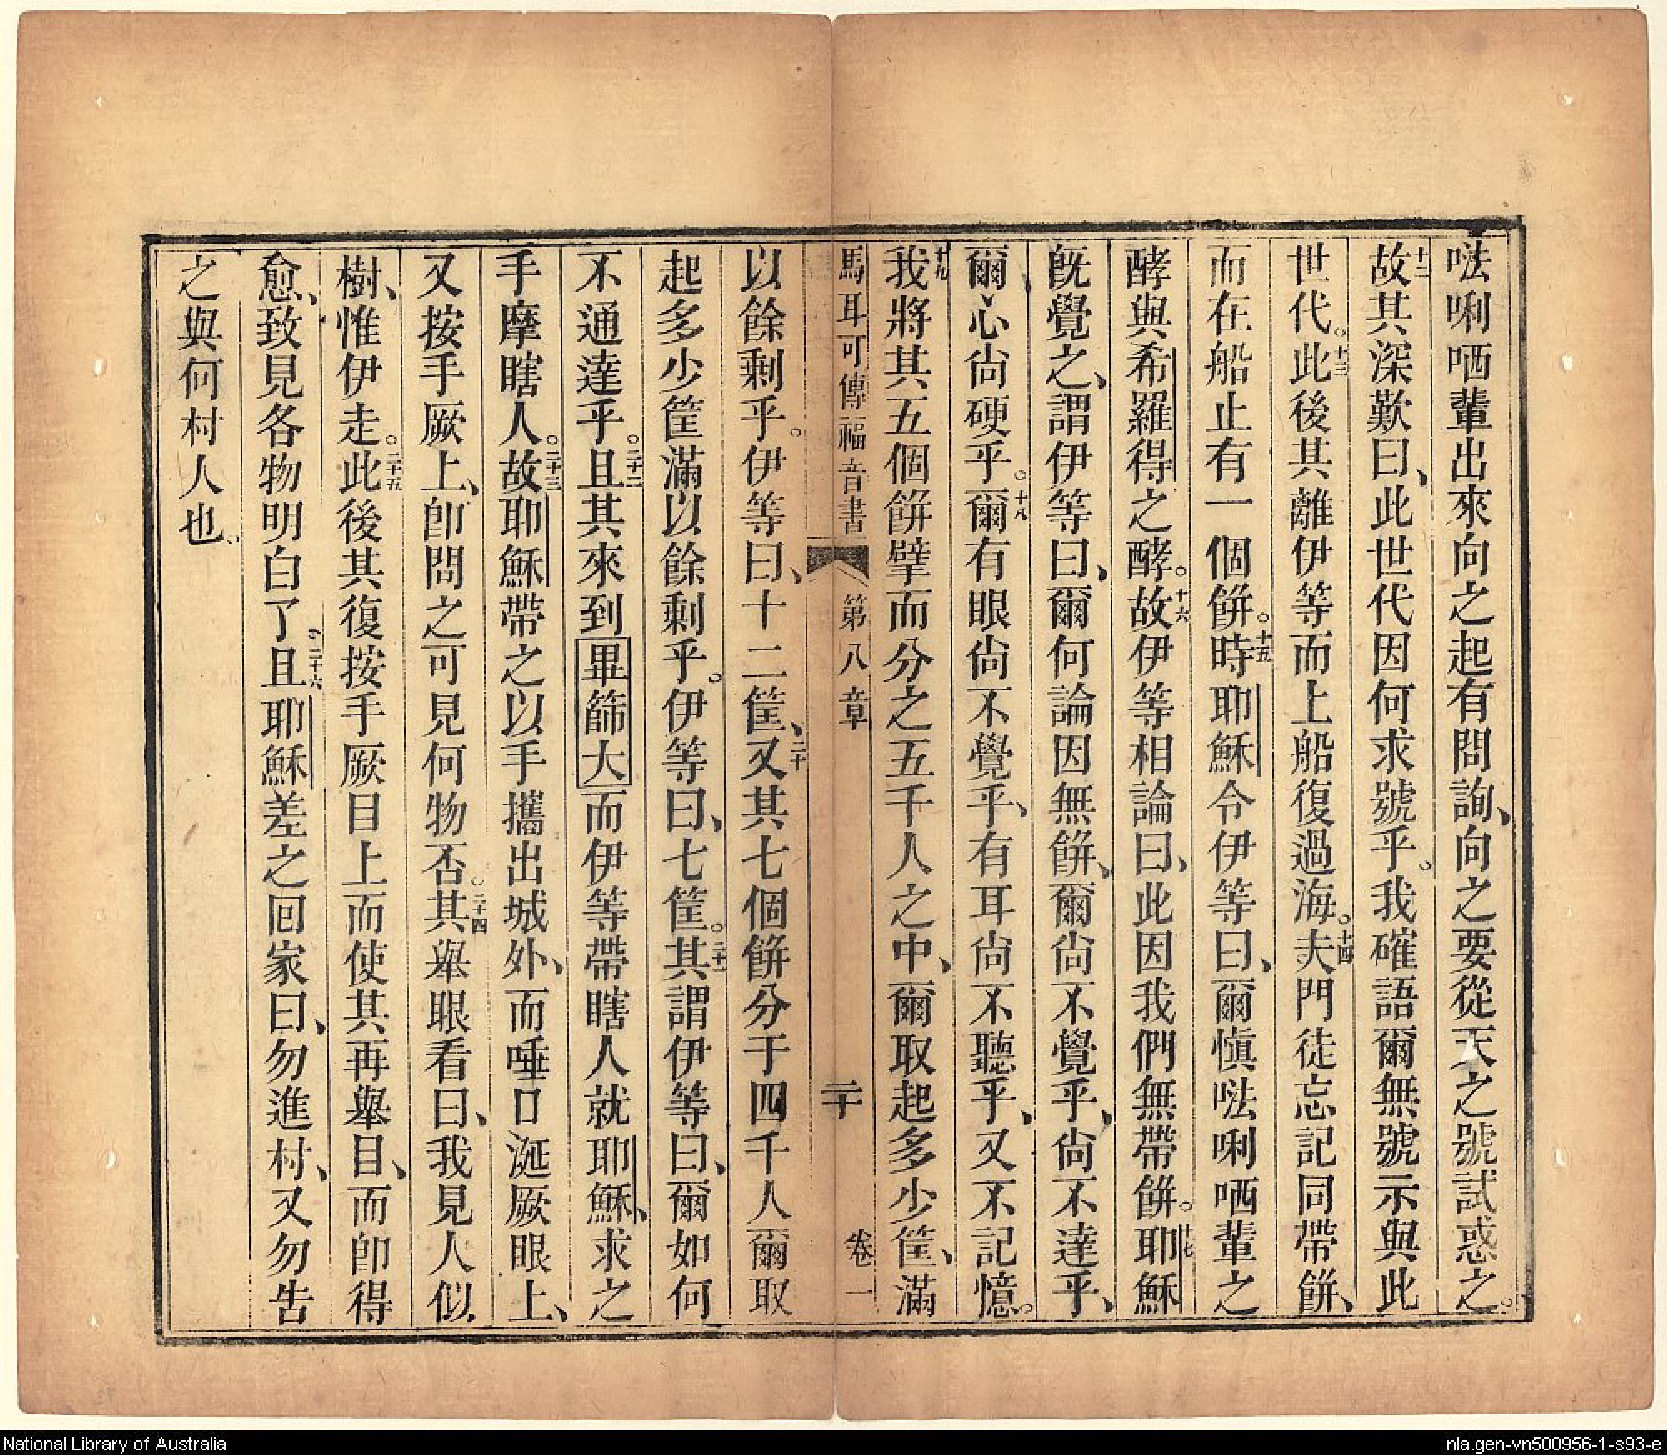 𠵽唎哂輩出來向之起有問詢、向之要從天之號試惑之。
十二故其深歎曰、此世代因何求號乎。我確語爾無號示與此
世代。十三此後其離伊等而上船復過海。十四夫門徒忘記同帶餅、
而在船止有一個餅。十五時耶穌令伊等曰、爾愼𠵽唎哂輩之
酵與希羅得之酵。十六故伊等相論曰、此因我們無帶餅。十七耶穌
旣覺之、謂伊等曰、爾何論因無餅、爾尙不覺乎、尙不達乎、
爾心尙硬乎。十八爾有眼尙不覺乎、有耳尙不聽乎、又不記憶。
十九我將其五個餅擘而分之五千人之中、爾取起多少筐、滿
馬耳可傳福音書 第八章 二十 卷一
以餘剩乎。伊等曰、十二筐、二十又其七個餅分于四千人爾取
起多少筐滿以餘剩乎。伊等曰、七筐。二十一其謂伊等曰、爾如何
不通達乎。二十二且其來到畢篩大而伊等帶瞎人就耶穌、求之
手摩瞎人。二十三故耶穌帶之以手攜出城外、而唾口涎厥眼上、
又按手厥上、卽問之可見何物否。二十四其舉眼看曰、我見人似
樹、惟伊走。二十五此後其復按手厥目上而使其再舉目、而卽得
愈、致見各物明白了。二十六且耶穌差之囘家曰、勿進村、又勿告
之與何村人也。
National Library of Australia
nla.gen-vn500956-1-s93-e